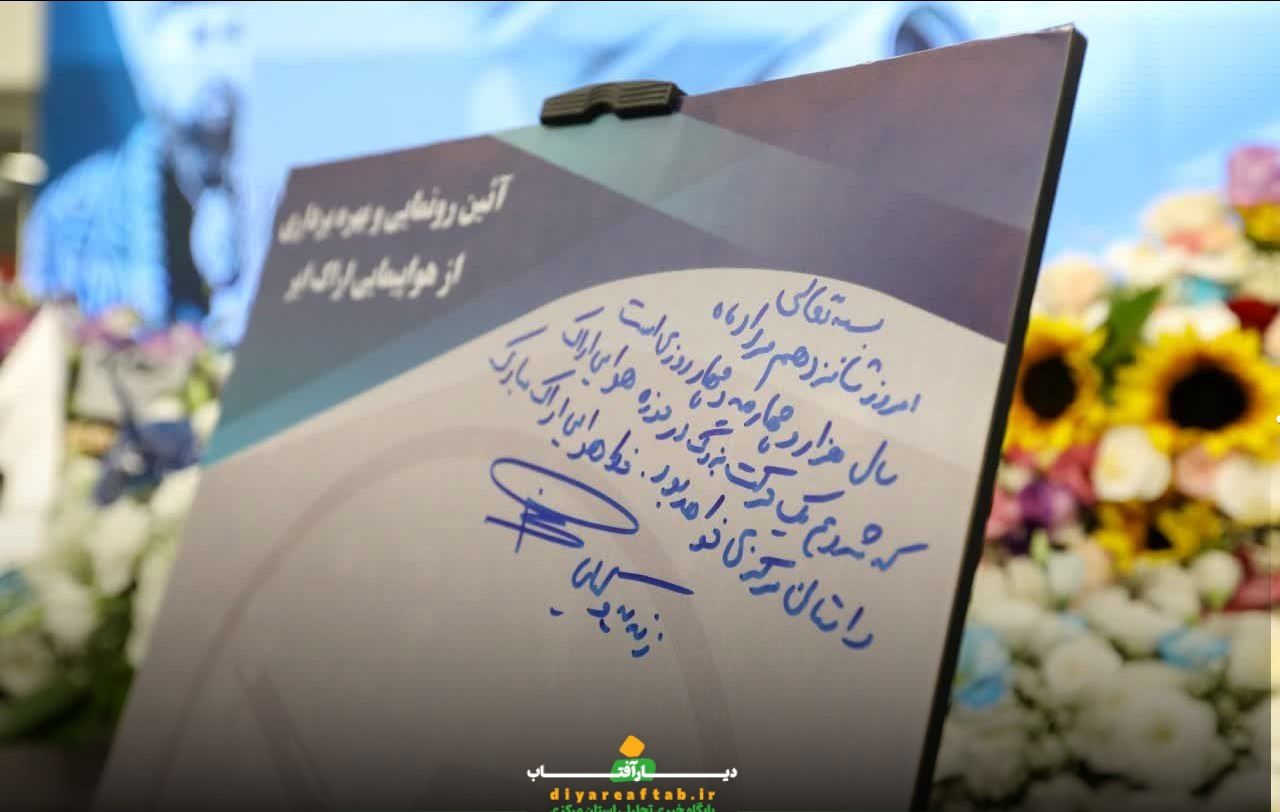 آئین رونمایی و بهره برداری
از هواپیمایی اراک ایر
بسمه تعالی
امروز شانزدهم مردادماه
سال هزار و چهارصد و چهار روزی است
که شروع یک حرکت بزرگ در حوزه هوایی اراک
و استان مرکزی خواهد بود. خط هوایی اراک مبارک
دیــارآفتــاب
diyareaftab.ir
پایگاه خبری تحلیلی استان مرکزی